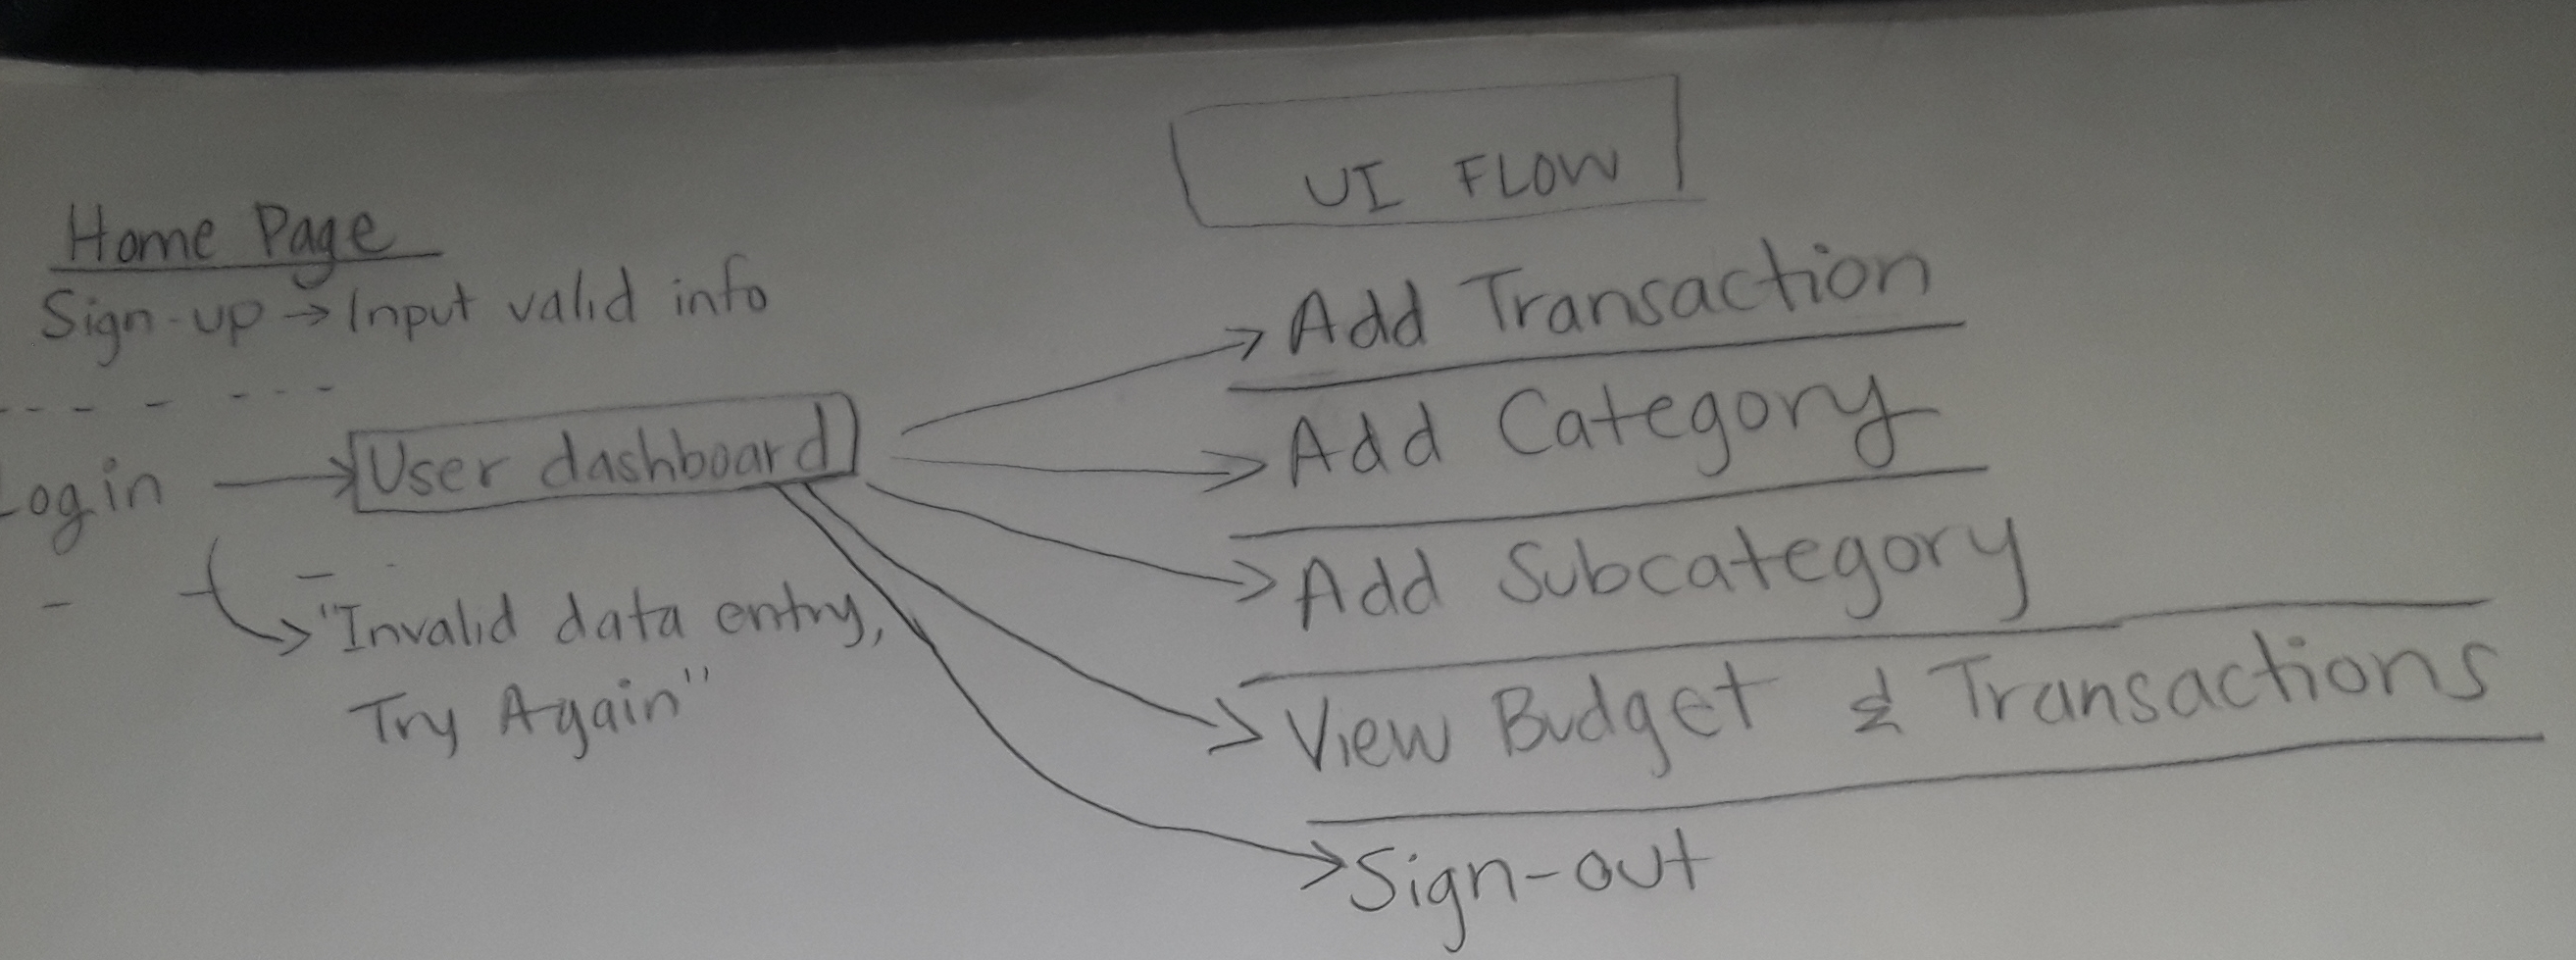 UI FLOW
Home Page
Sign-up → Input valid info
Login → User dashboard
→ "Invalid data entry,
Try Again"
→ Add Transaction
→ Add Category
→ Add Subcategory
→ View Budget & Transactions
→ Sign-out